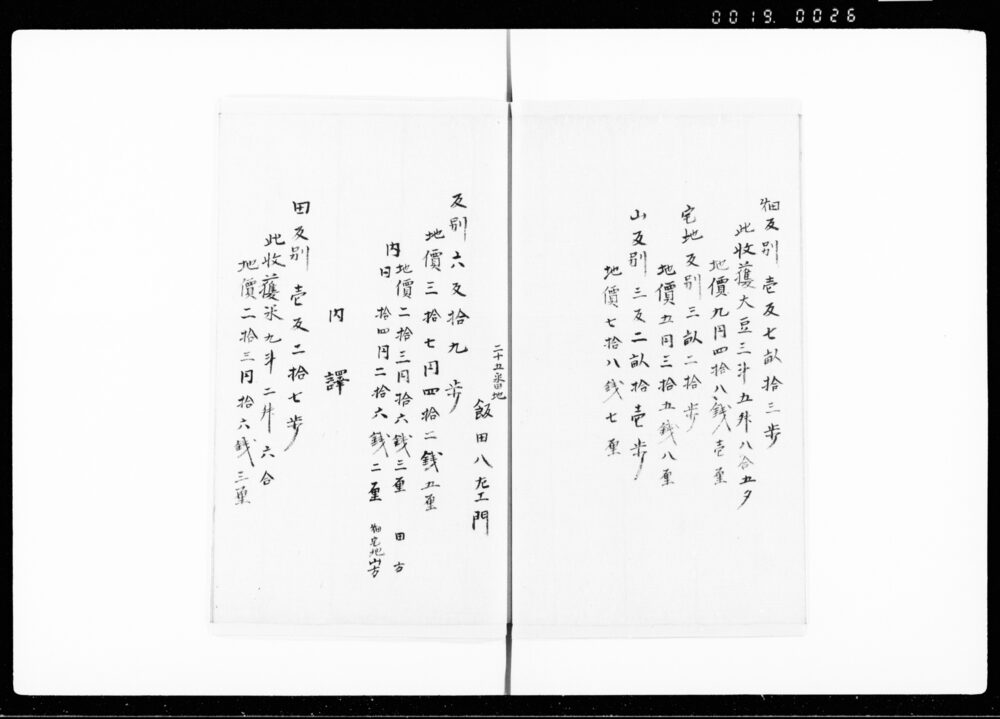 0019. 0026
畑反別 壱反七畝拾三歩
此收穫大豆三斗五舛八合五夕
地價九円四拾八銭壱厘
宅地反別 三畝二拾歩
地價五円三拾五銭八厘
山反別 三反二畝拾壱歩
地價七拾八銭七厘
二十五番地
飯田八左エ門
反別六反拾九歩
地價三拾七円四拾二銭五厘
内
地價二拾三円拾六銭三厘 田方
内日 拾四円二拾六銭二厘 畑宅地山方
内譯
田反別 壱反二拾七歩
此收穫米九斗二舛六合
地價二拾三円拾六銭三厘